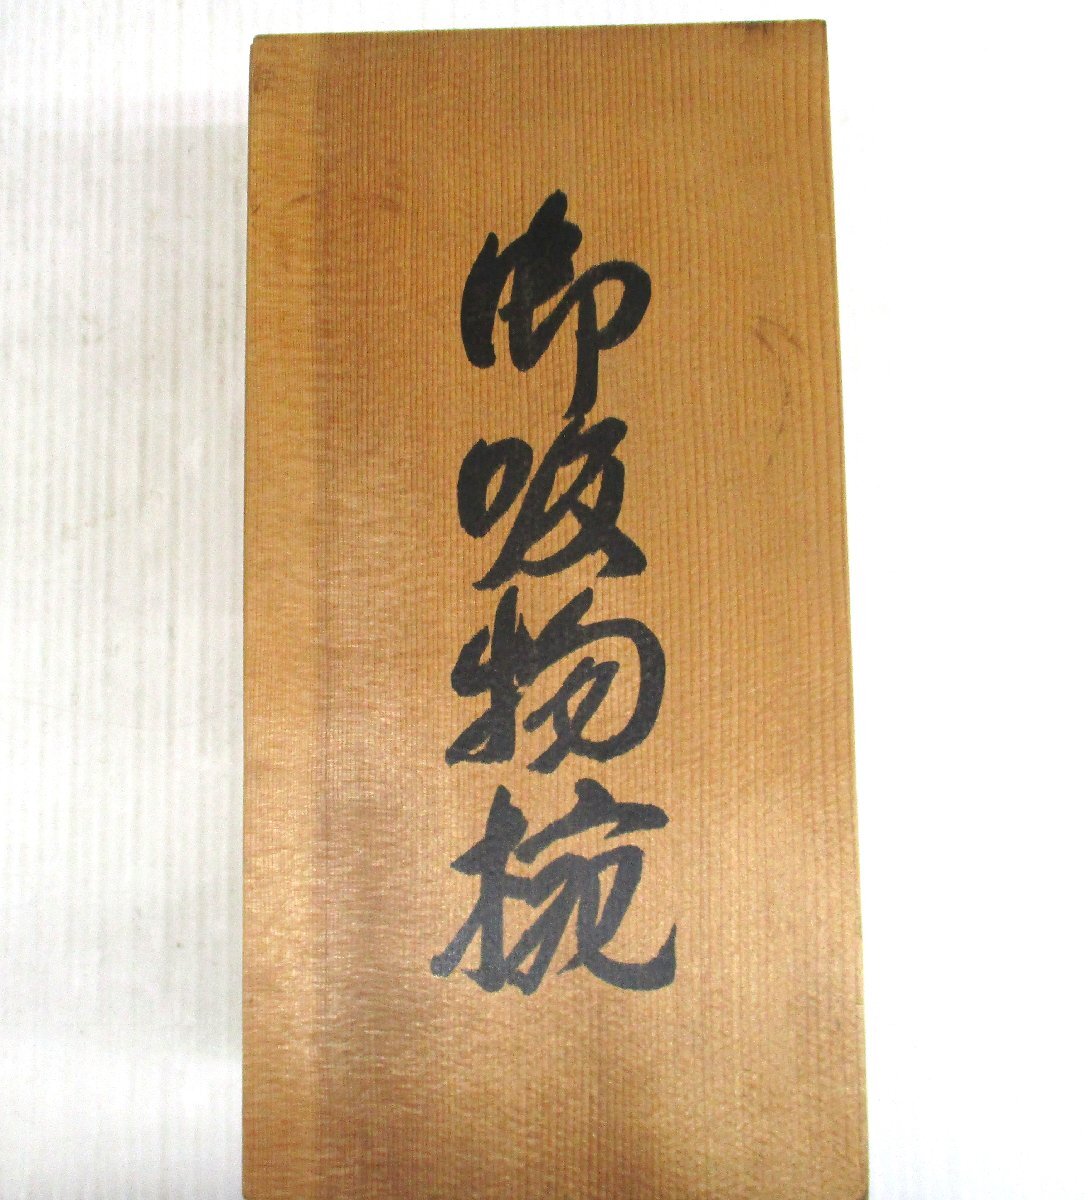 御吸物椀